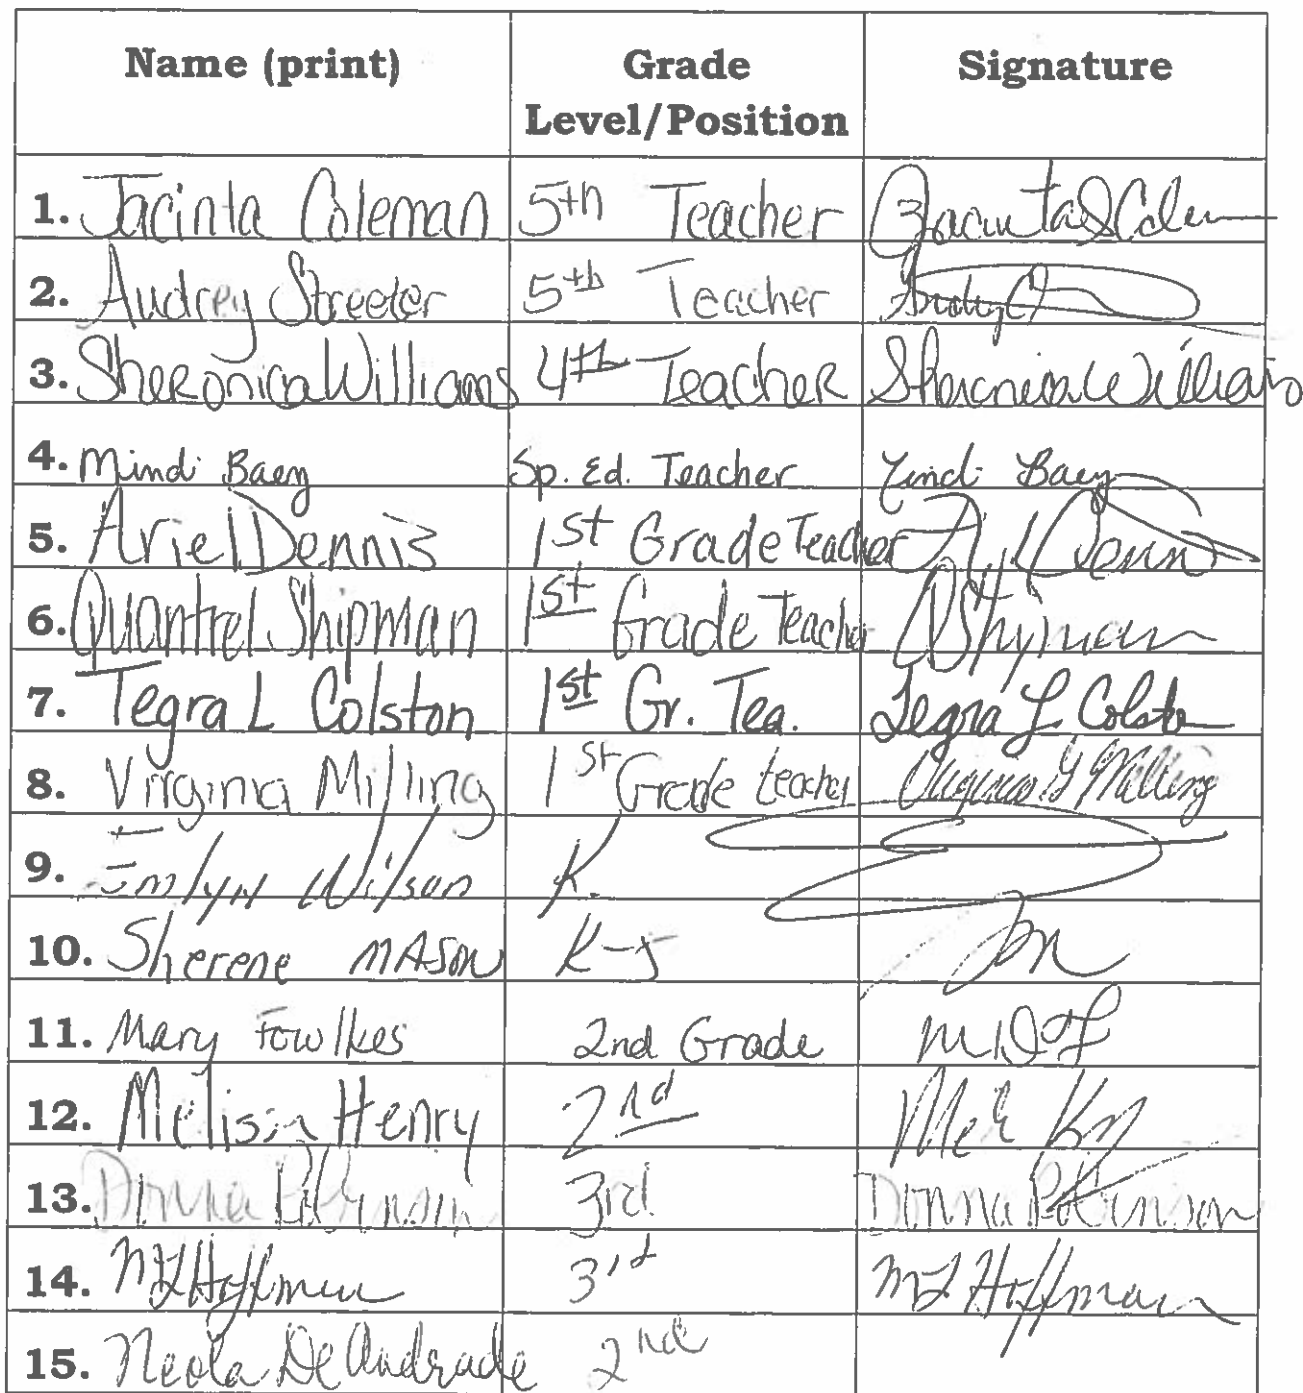 Name (print) Grade Level/Position Signature
1. Jacinta Coleman 5th Teacher Jacinta S Colem
2. Audrey Streeter 5th Teacher Audrey
3. Sheronica Williams 4th Teacher Sheronica Williams
4. Mindi Baey Sp. Ed. Teacher Mindi Baey
5. Ariel Dennis 1st Grade Teacher
6. Quantrel Shipman 1st Grade Teacher QShipman
7. Tegra L Colston 1st Gr. Tea. Tegra L Colston
8. Virginia Milling 1st Grade teacher Virginia G Milling
9. Emlyn Wilson K.
10. Sherene MASon K-5
11. Mary Fowlkes 2nd Grade
12. Melissa Henry 2nd
13. Donna 3rd Donna
14. ML Hoffman 3rd ML Hoffman
15. Neola De Andrade 2nd